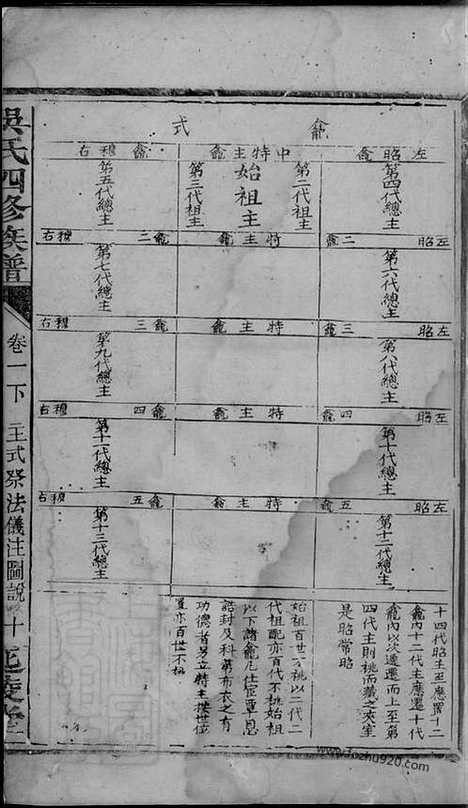 龕式
左昭龕
中特主龕
右穆龕
第四代總主
第二代祖主
始祖主
第三代祖主
第五代總主
左昭二龕
特主龕
右穆二龕
第六代總主
第七代總主
左昭三龕
特主龕
右穆三龕
第八代總主
第九代總主
左昭四龕
特主龕
右穆四龕
第十代總主
第十代總主
左昭五龕
特主龕
右穆五龕
第十二代總主
第十三代總主
十四代昭主至應置十二
龕內十二代主應遷十代
龕內以次遞遷而上至第
四代主則祧而藏之夾室
是昭常昭
始祖百世不祧以二代三
代祖配亦百代不祧始祖
以下諸龕凡仕宦覃恩
誥封及科第布衣之有
功德者另立特主按世位
置亦百世不祧
吳氏四修族譜
卷一下 主式祭法儀注圖說 十 延陵堂